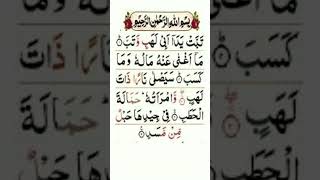 بِسْمِ اللهِ الرَّحْمٰنِ الرَّحِيْمِ
تَبَّتْ يَدَاۤ اَبِىْ لَهَبٍ وَّتَبَّ
مَاۤ اَغْنٰى عَنْهُ مَالُهٗ وَمَا
كَسَبَ سَيَصْلٰى نَارًا ذَاتَ
لَهَبٍ وَّامْرَاَتُهٗ حَمَّالَةَ
الْحَطَبِ فِىْ جِيْدِهَا حَبْلٌ
مِّنْ مَّسَدٍ